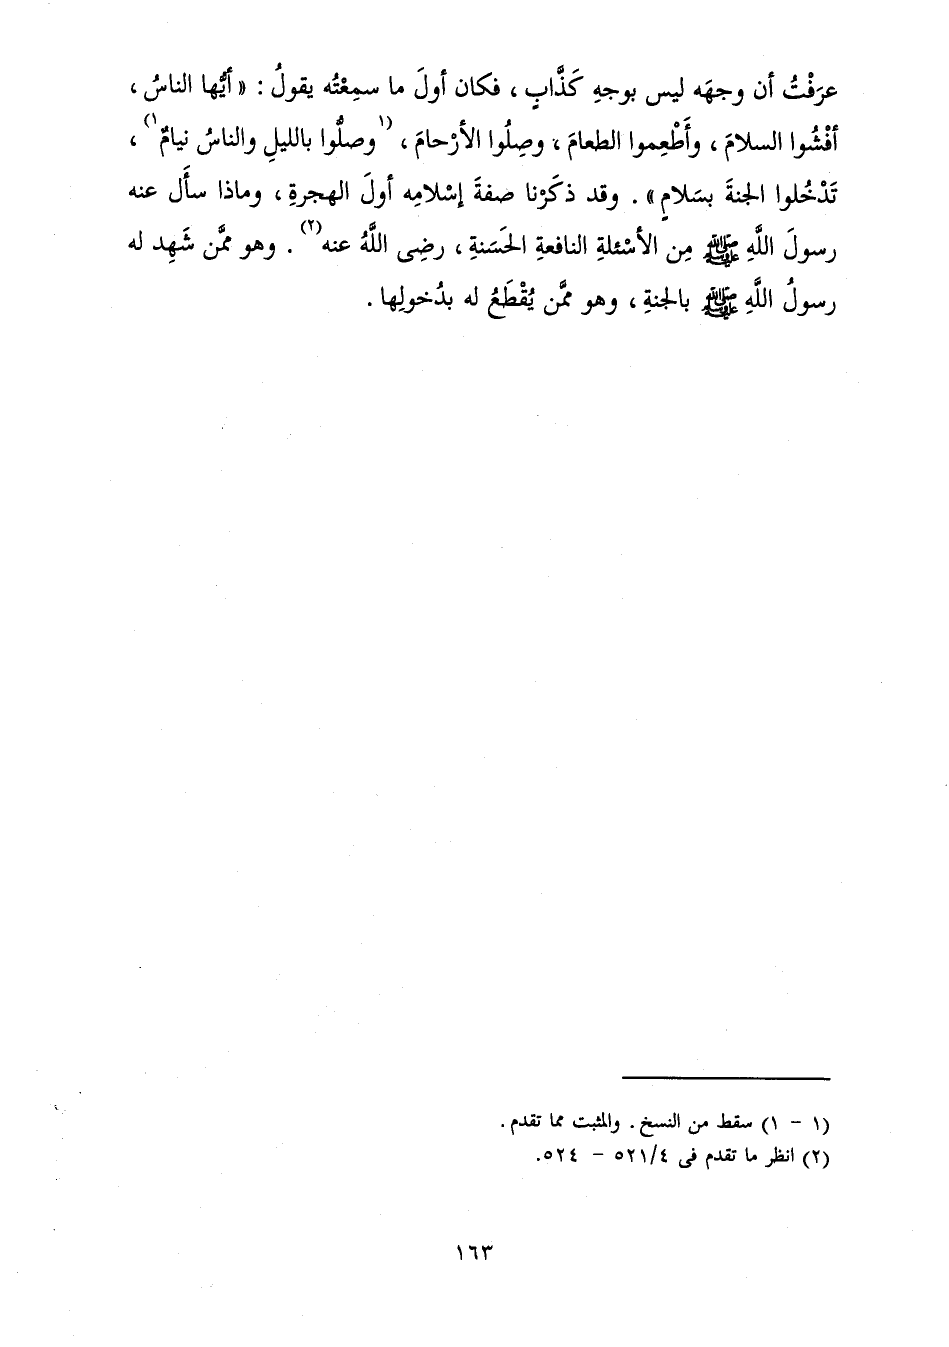 عرَفْتُ أن وجهَه ليس بوجهِ كَذَّابٍ ، فكان أولَ ما سمِعْتُه يقولُ : « أيُّها الناسُ ،
أفْشُوا السلامَ ، وأَطْعِموا الطعامَ ، وصِلُوا الأرْحامَ ، (١ وصلُّوا بالليلِ والناسُ نيامٌ ١) ،
تَدْخُلوا الجنةَ بسَلامٍ » . وقد ذكَرْنا صفةَ إسْلامِه أولَ الهجرةِ ، وماذا سأَل عنه
رسولَ اللَّهِ ﷺ مِن الأسْئلةِ النافعةِ الحَسَنةِ ، رضِى اللَّهُ عنه (٢) . وهو ممَّن شَهِد له
رسولُ اللَّهِ ﷺ بالجنةِ ، وهو ممَّن يُقْطَعُ له بدُخولِها .
(١ - ١) سقط من النسخ . والمثبت مما تقدم .
(٢) انظر ما تقدم فى ٥٢١/٤ - ٥٢٤ .
١٦٣